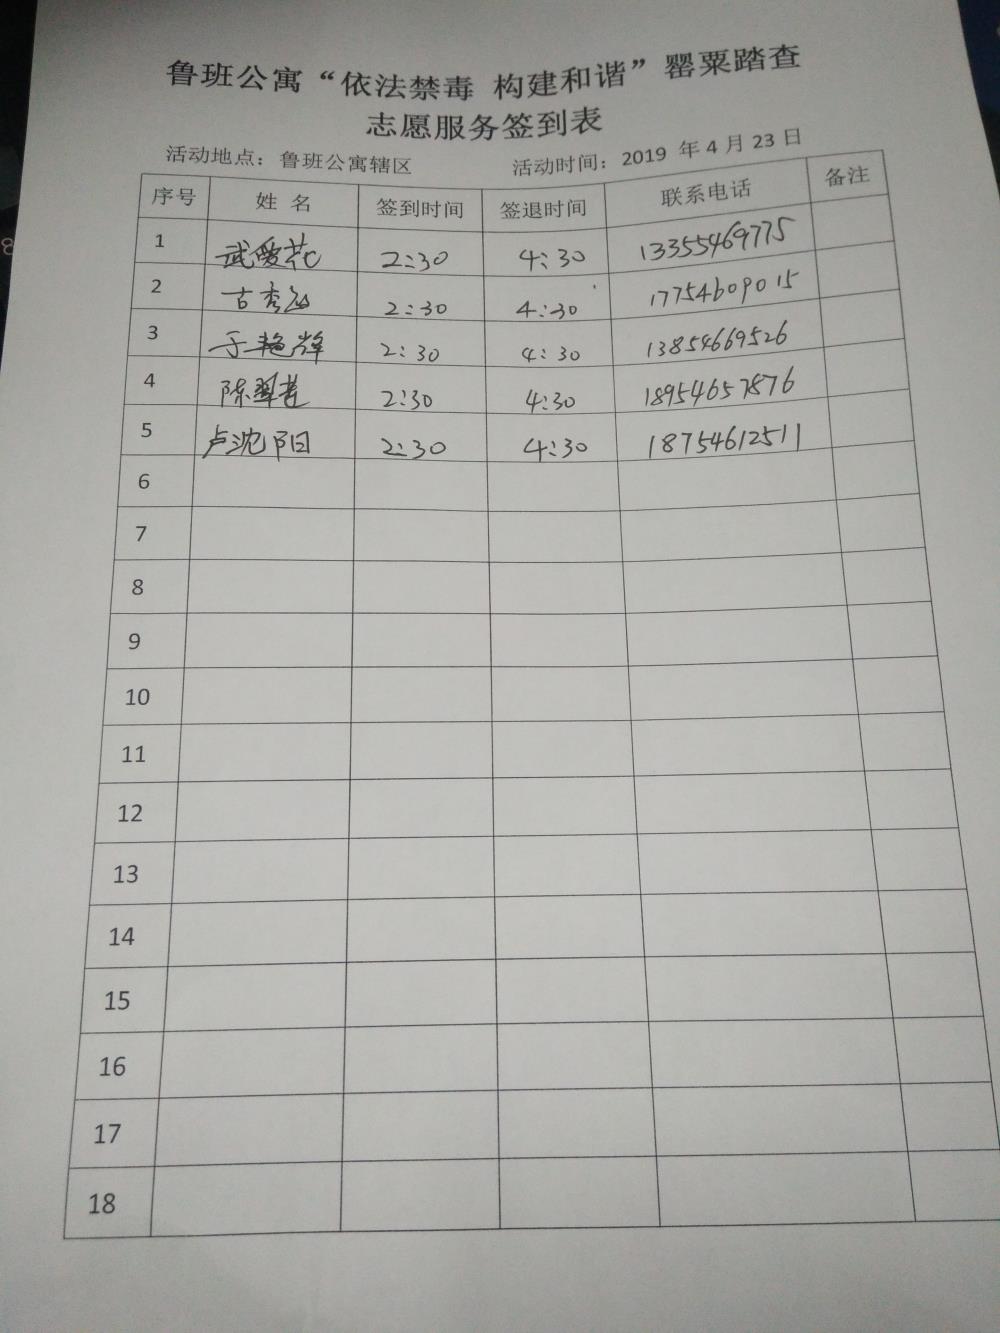 鲁班公寓“依法禁毒 构建和谐”罂粟踏查
志愿服务签到表
活动地点：鲁班公寓辖区 活动时间：2019 年 4 月 23 日
序号 姓 名 签到时间 签退时间 联系电话 备注
1 武爱花 2:30 4:30 13355469775
2 古秀 2:30 4:30 17754609015
3 于艳辉 2:30 4:30 13854669526
4 陈翠 2:30 4:30 18954657876
5 卢沈阳 2:30 4:30 18754612511
6
7
8
9
10
11
12
13
14
15
16
17
18